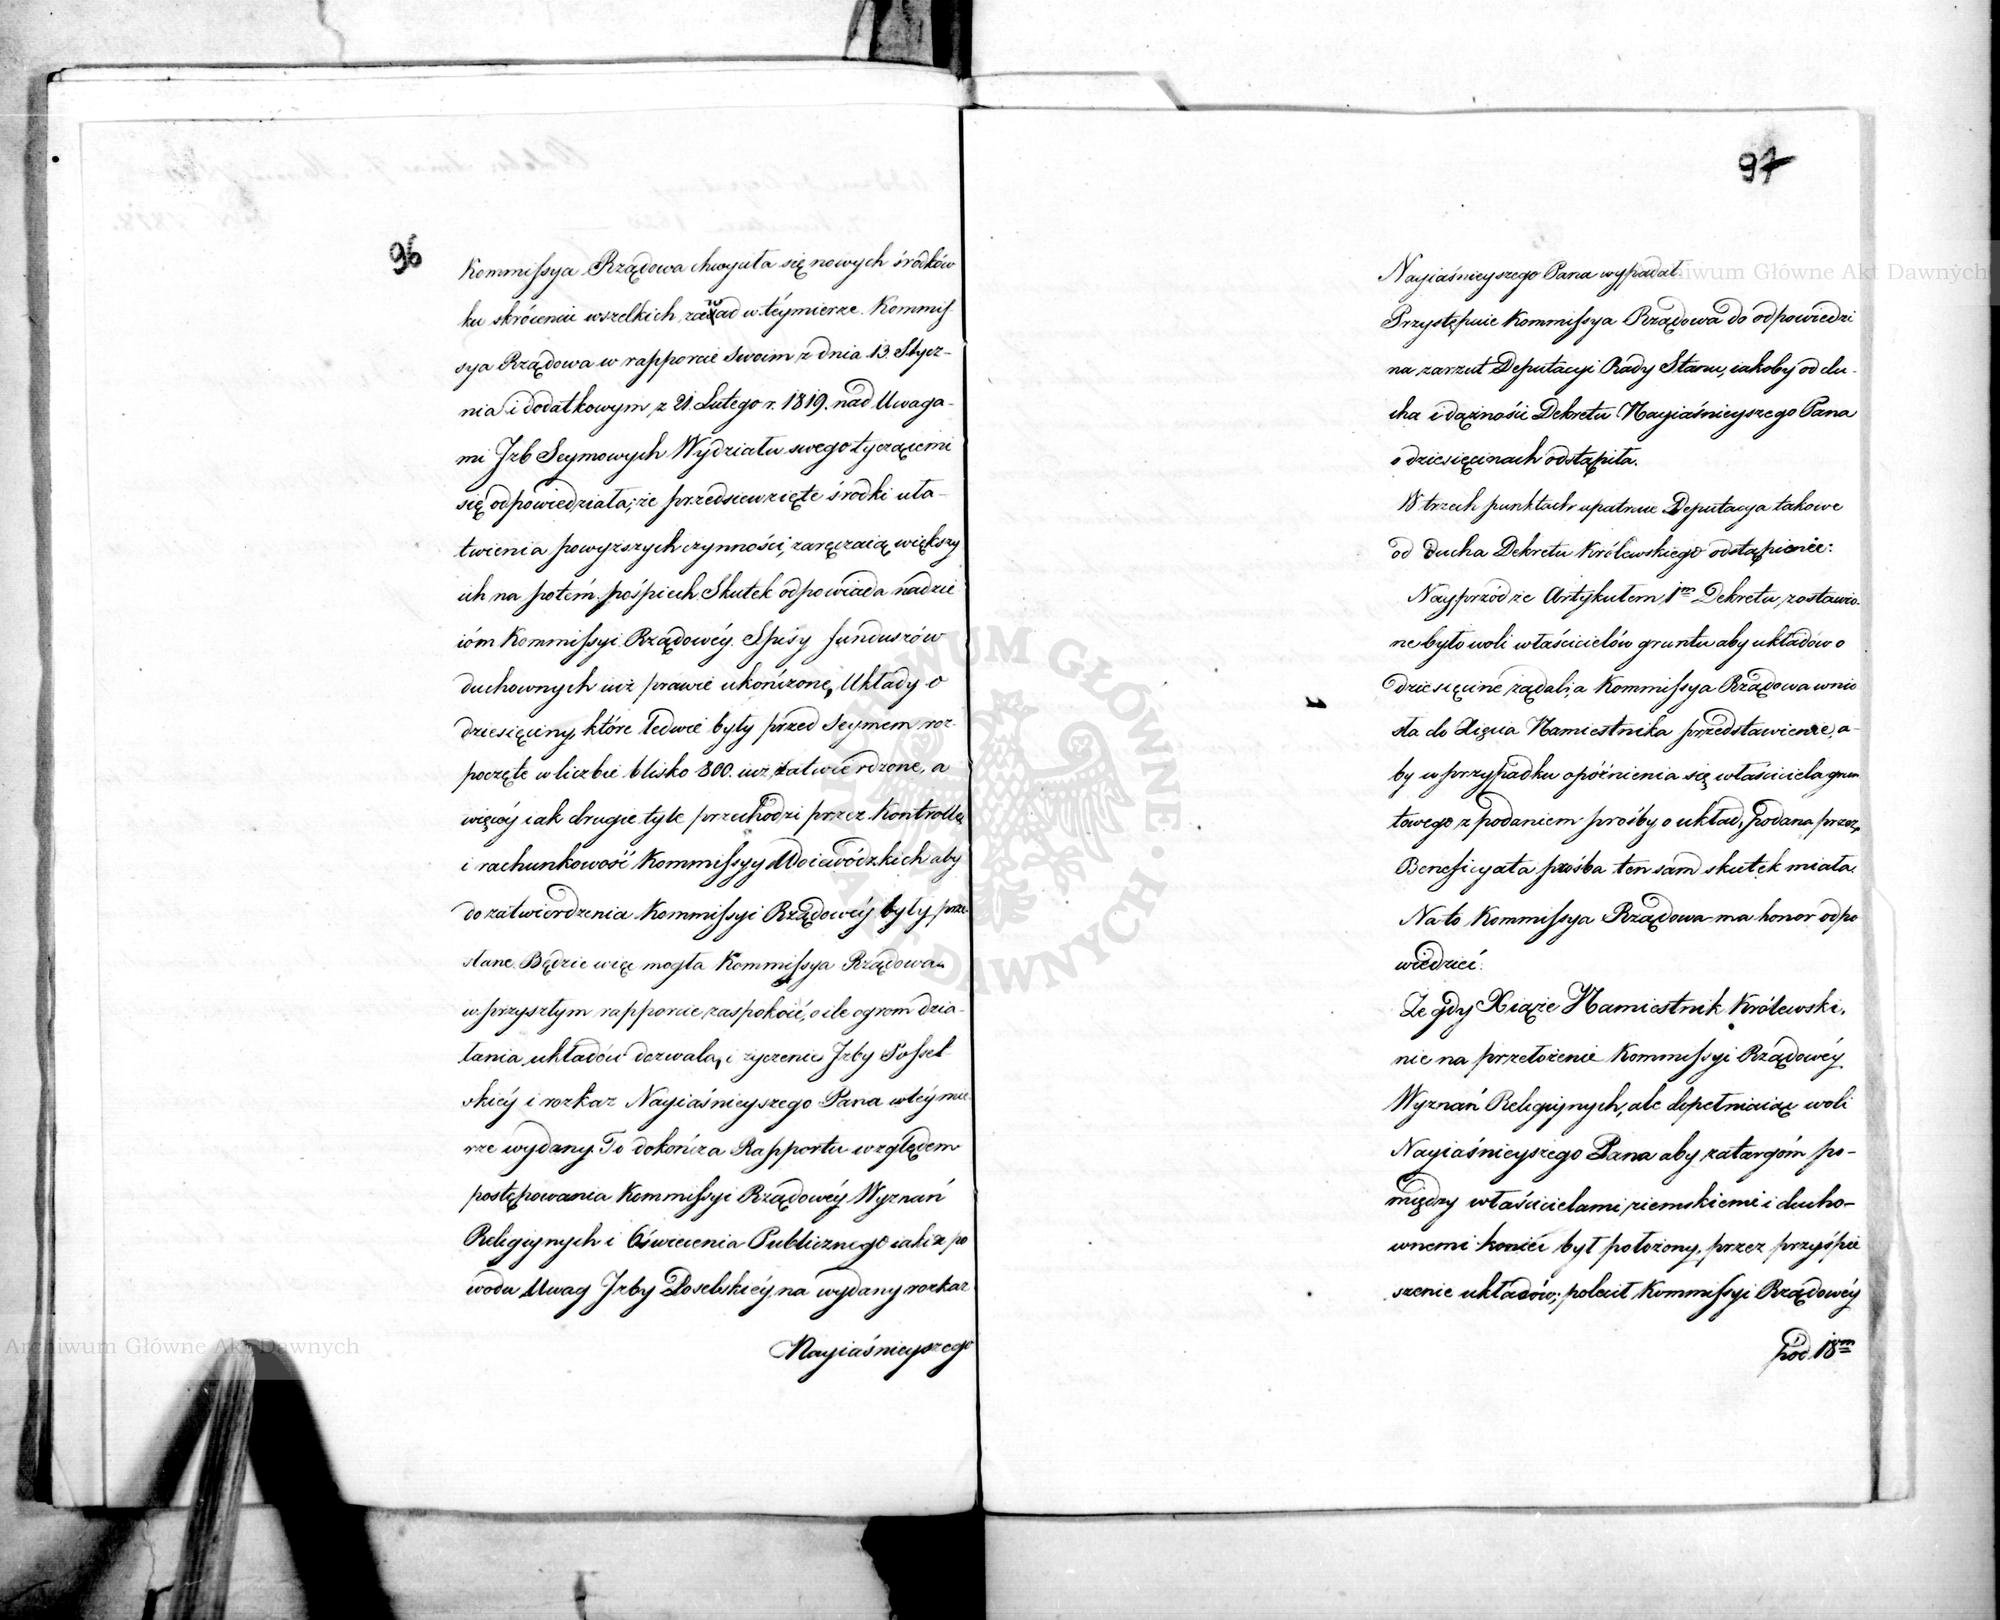 96
Kommissya Rządowa chwyciła się nowych środków
ku skróceniu wszelkich zawad w téymierze. Kommis-
sya Rządowa w rapporcie swoim z dnia 13. Stycz-
nia i dodatkowym z 21. Lutego r. 1819. nad Uwaga-
mi Jzb Seymowych Wydziału swego tyczącemi
się odpowiedziała; że przedsiewzięte środki uła-
twienia powyższych czynności, zaręczaią większy
ich na potém pośpiech. Skutek odpowiada nadzie
ióm Kommissyi Rządowéy. Spisy funduszów
duchownych iuż prawie ukończone, Układy o
dziesięciny, które ledwie były przed Seymem roz-
poczęte w liczbie blisko 800. iuż zatwierdzone, a
więcéy iak drugie tyle przechodzi przez Kontrollę
i rachunkowość Kommissyy Woiewódzkich aby
do zatwierdzenia Kommissyi Rządowéy były prze-
słane. Będzie więc mogła Kommissya Rządowa
w przyszłym rapporcie zaspokoić, o ile ogrom dzia-
łania układów dozwala, i życzenie Jzby Possel-
skiéy i rozkaz Nayiaśnieyszego Pana w téy mie-
rze wydany. Tu dokończa Rapportu względem
postępowania Kommissyi Rządowéy Wyznań
Religiynych i Oświecenia Publicznego iaki z po
wodu Uwag Jzby Poselskiéy na wydany rozkaz
Nayiaśnieyszego
97
Nayiaśnieyszego Pana wypadał.
Przystępuie Kommissya Rządowa do odpowiedzi
na zarzut Deputacyi Rady Stanu, iakoby od du-
cha i dążności Dekretu Nayiaśnieyszego Pana
o dziesięcinach odstąpiła.
W trzech punktach upatruie Deputacya takowe
od ducha Dekretu Królewskiego odstąpienie:
Nayprzód że Artykułem 1m Dekretu, zostawio-
ne było woli właścicielów gruntu aby układów o
dziesięcinę żądali, a Kommissya Rządowa wnio
sła do Xięcia Namiestnika przedstawienie, a-
by w przypadku opóźnienia się właściciela grun
towego z podaniem prośby o układ, podana przez
Beneficyata prośba ten sam skutek miała.
Na to Kommissya Rządowa ma honor odpo
wiedzieć:
Że gdy Xiąże Namiestnik Królewski,
nie na przełożenie Kommissyi Rządowéy
Wyznań Religiynych, ale dopełniaiąc woli
Nayiaśnieyszego Pana aby zatargóm po-
między właścicielami ziemskiemi i ducho-
wnemi koniec był położony, przez przyśpie
szenie układów; polecił Kommissyi Rządowéy
pod 18m
Archiwum Główne Akt Dawnych
Archiwum Główne Akt Dawnych
ARCHIWUM GŁÓWNE AKT DAWNYCH